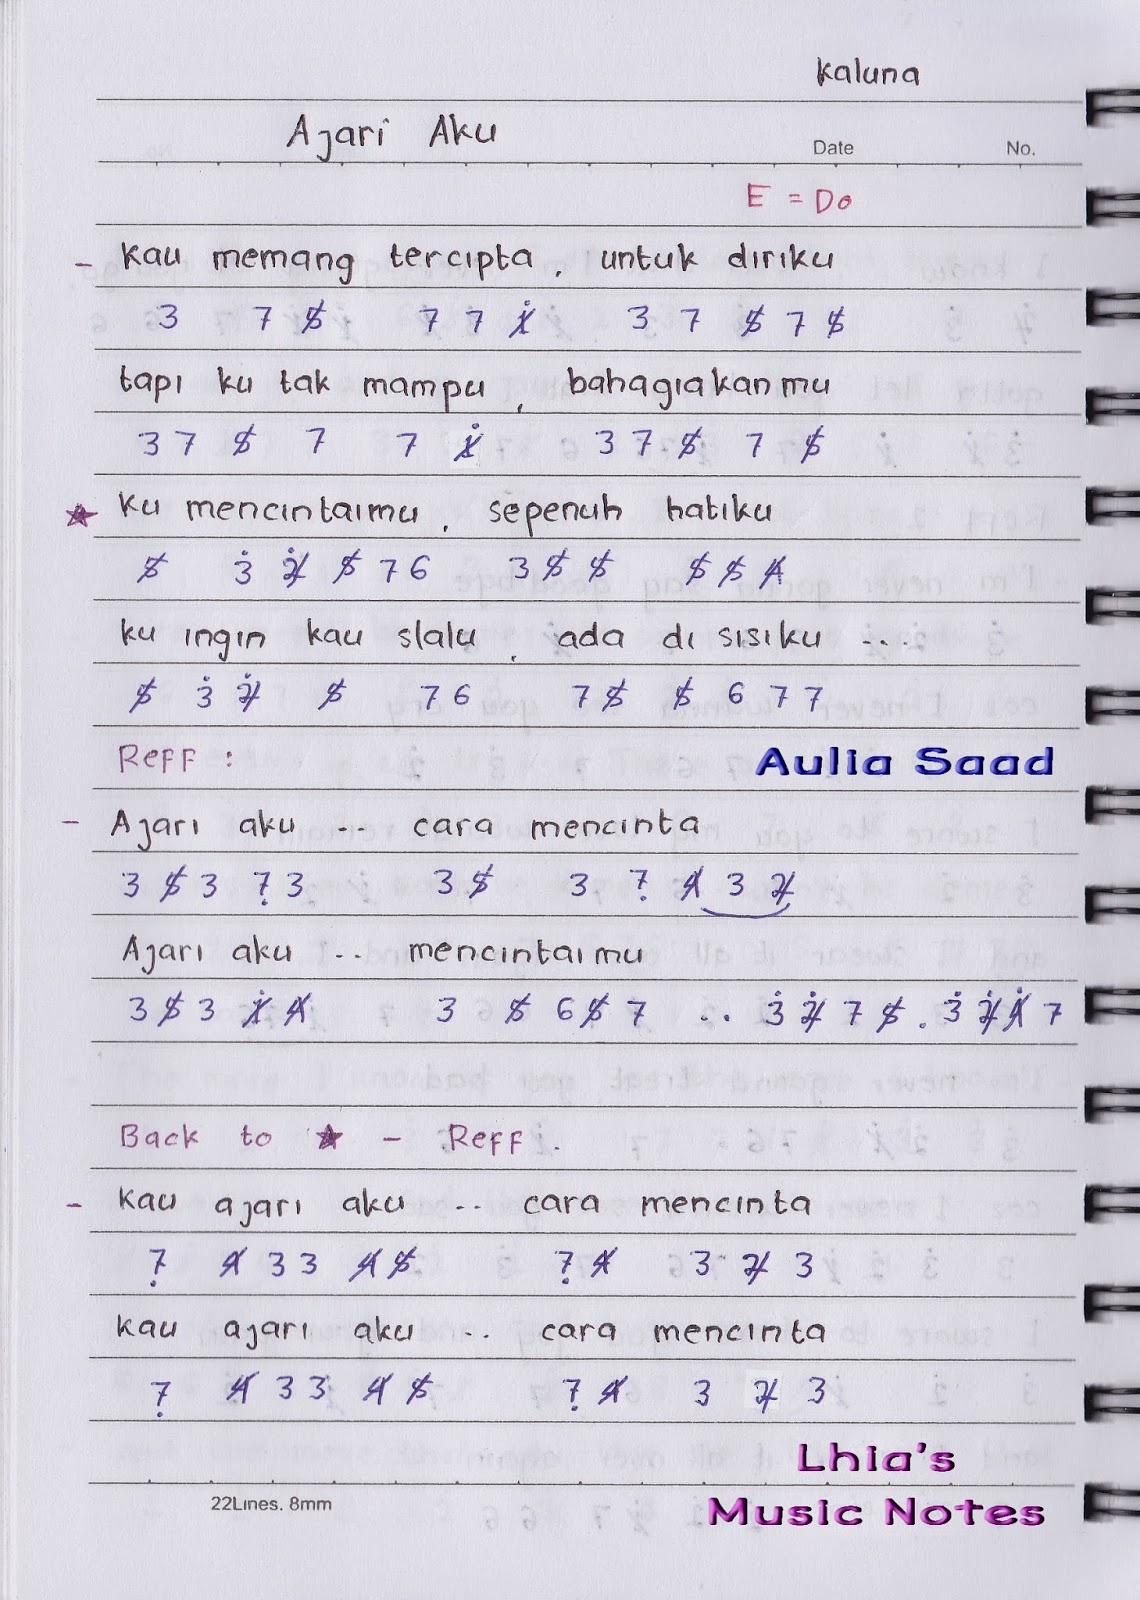 Kaluna
Ajari Aku
Date No.
E = Do
- Kau memang tercipta, untuk diriku
3 7 5̸ 7 7 1̸̇ 3 7 5̸ 7 5̸
tapi ku tak mampu, bahagiakanmu
3 7 5̸ 7 7 1̸̇ 3 7 5̸ 7 5̸
★ Ku mencintaimu, sepenuh hatiku
5̸ 3̇ 2̸̇ 5̸ 7 6 3 5̸ 5̸ 5̸ 5̸ 4̸
ku ingin kau slalu, ada di sisiku ....
5̸ 3̇ 2̸̇ 5̸ 7 6 7 5̸ 5̸ 6 7 7
Reff :
Aulia Saad
- Ajari aku ... cara mencinta
3 5̸ 3 7̣ 3 3 5̸ 3 7̣ 1̸ 3 2̸
Ajari aku ... mencintaimu
3 5̸ 3 1̸̇ 4̸ 3 5̸ 6 5̸ 7 .. 3̇ 2̸̇ 7 5̸ . 3̇ 2̸̇ 1̸̇ 7
Back to ★ - Reff .
- Kau ajari aku ... cara mencinta
7̣ 1̸ 3 3 4̸ 5̸ 7̣ 1̸ 3 2̸ 3
kau ajari aku .. cara mencinta
7̣ 1̸ 3 3 4̸ 5̸ 7̣ 1̸ 3 2̸ 3
Lhia's
Music Notes
22Lines. 8mm